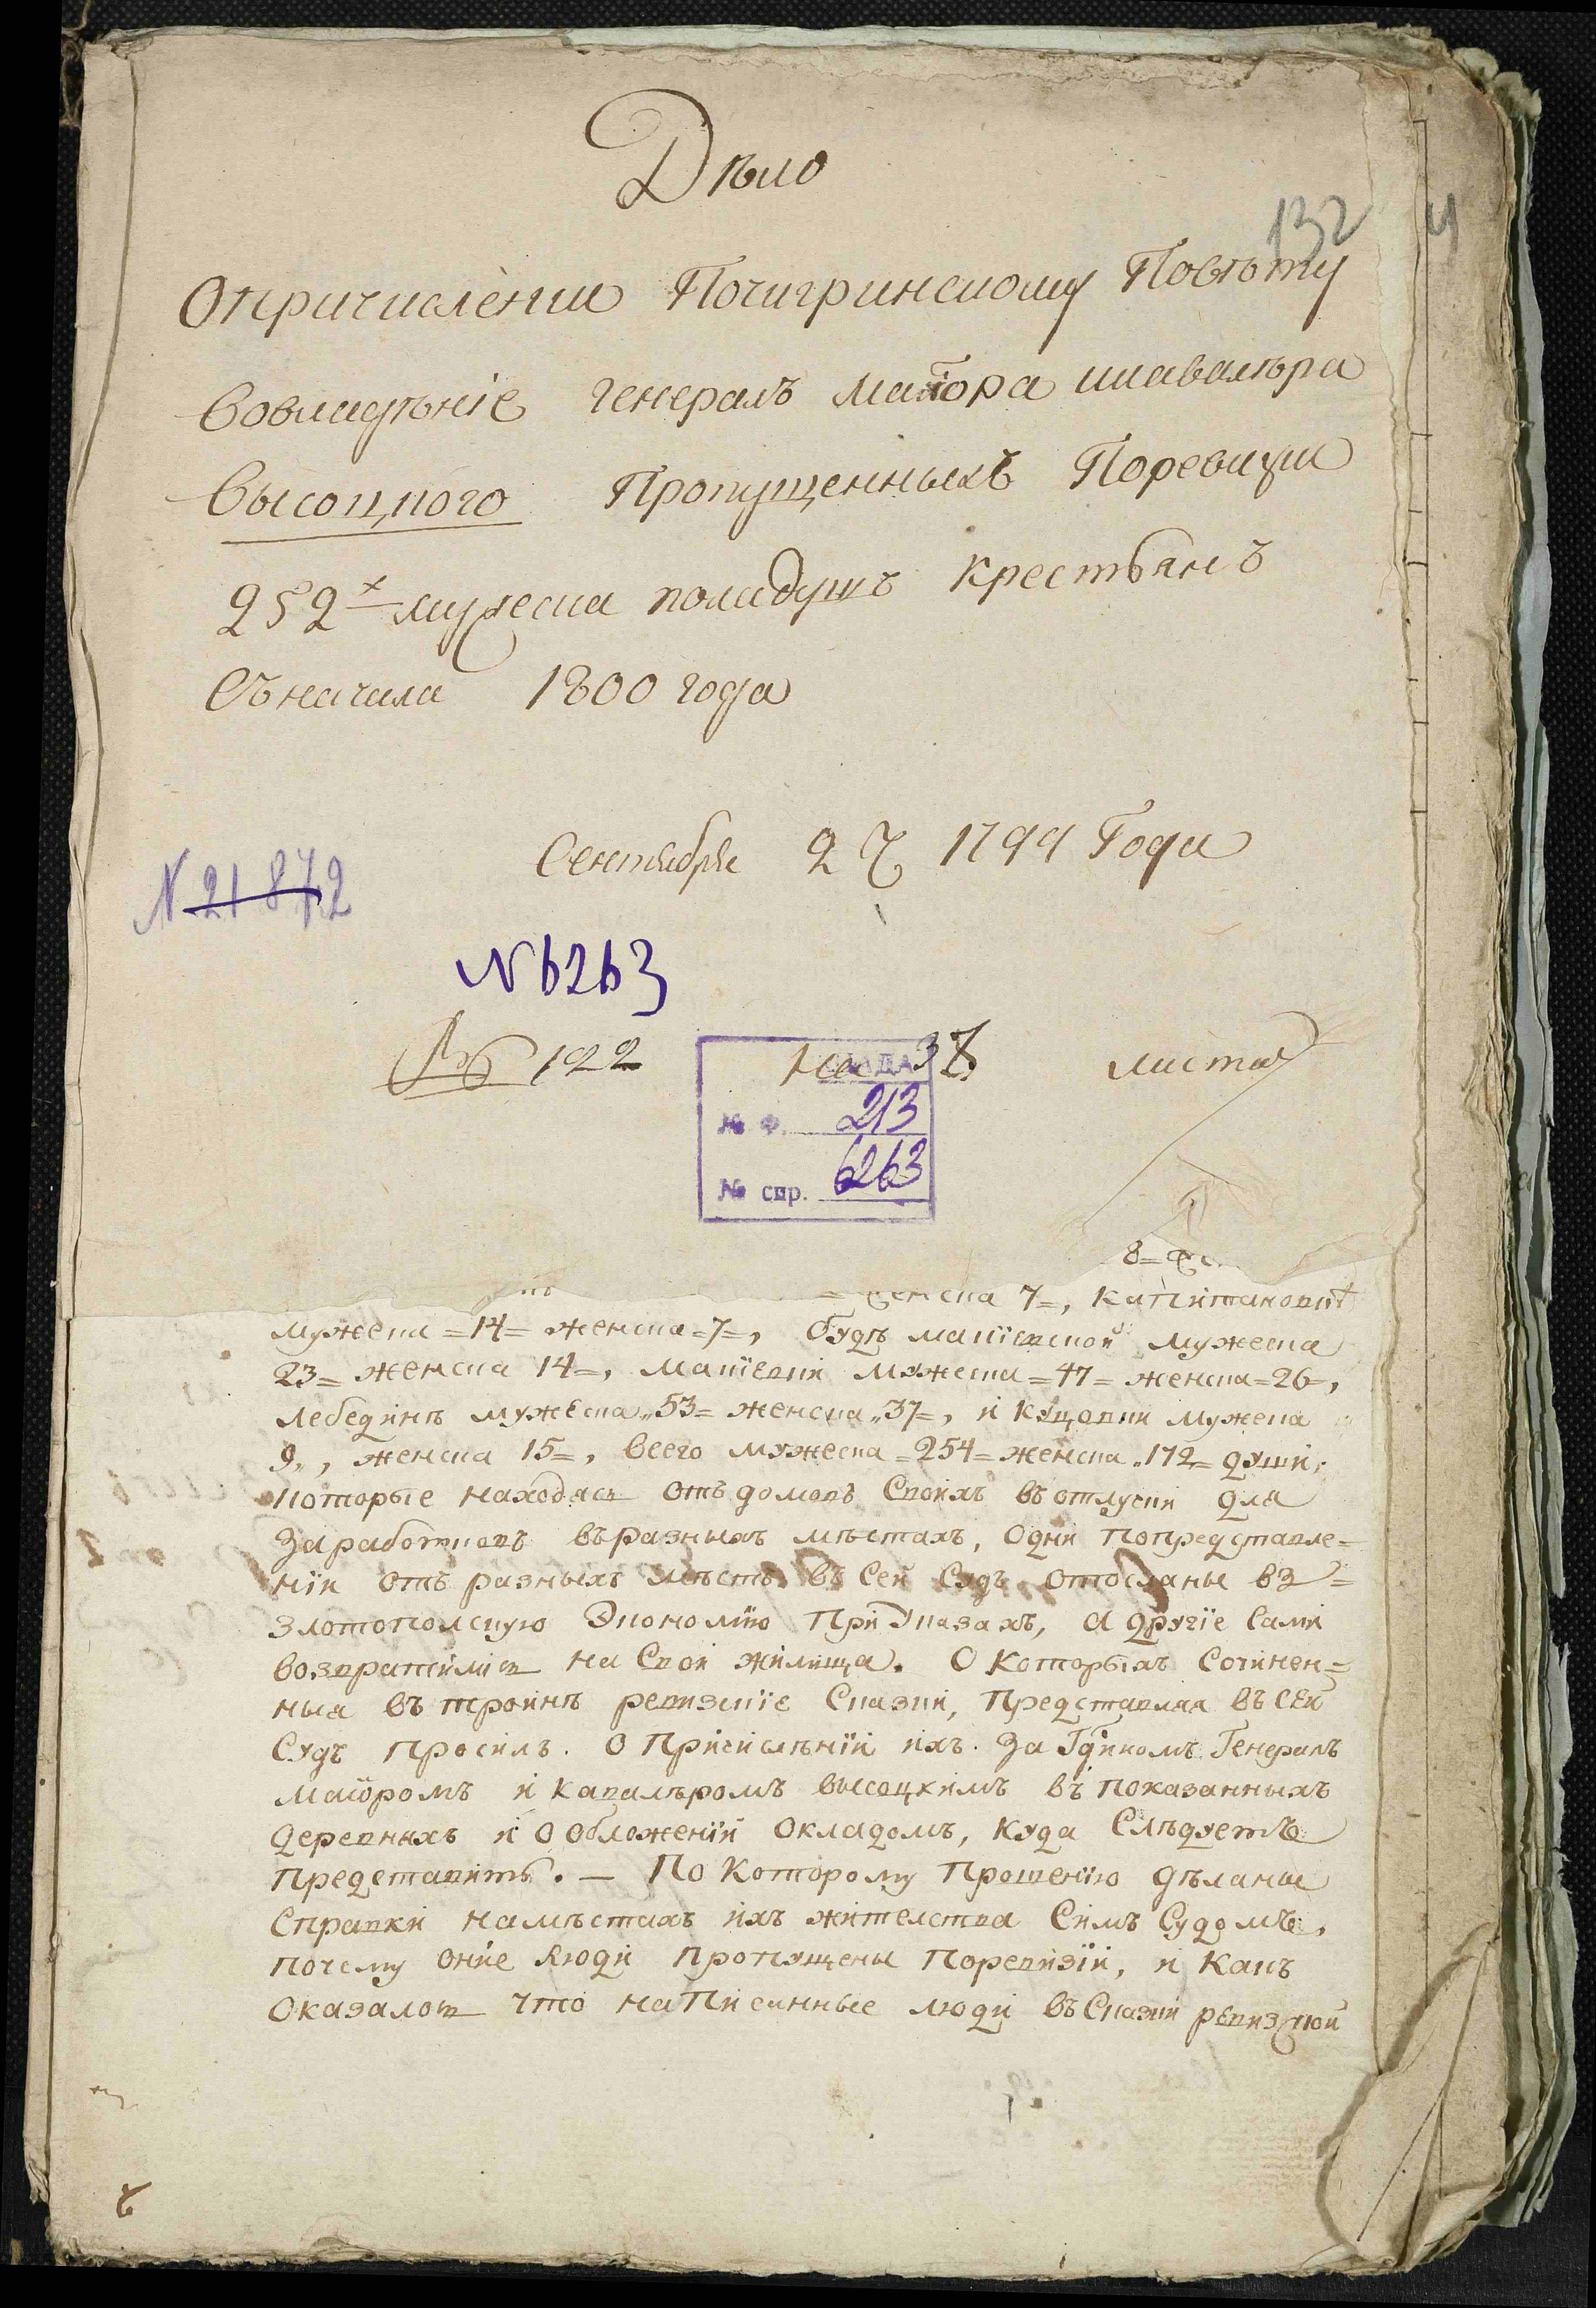 Дѣло
132
4
Опричисленіи Почигринскому Повѣту
Вовладѣніе генералъ маіора икавалѣра
Высоцкого Пропущенныхъ Поревизіи
252х мужеска поладушъ крестьянъ
Съначала 1800 года
Сентября 27 1799 Года
N 21872
N 6263
№ 122 На 37 листах
ЦДІА
№ Ф. 213
№ спр. 6263
8=
женска 7=, Капитановки
мужеска =14= женска =7=, Будъ маціевской мужеска
23= женска 14=, маціевки мужеска =47= женска =26=,
лебединъ мужеска „53= женска „37=, и Куцовки мужеска
9„, женска 15=, всего мужеска =254= женска „172= души,
которые находясь отъ домовъ Своихъ въ отлуски для
Заработковъ въразныхъ мѣстахъ, Одни Попредставле=
нїи отъ разныхъ мѣстъ въ Сей Судъ отосланы вз=
Златополскую Экономїю При Указахъ, а другїе Сами
возвратились на Свои жилища. О Которыхъ Сочинен=
ныя въ тройнѣ ревизскїе Сказки, Представляя въ Сей
Судъ Просилъ. О Причисленїи ихъ За Гдиномъ Генералъ
маіоромъ и кавалѣромъ высоцкимъ въ показанныхъ
деревняхъ и О обложенїи Окладомъ, Куда Слѣдуетъ
Представить. — По Которому Прошенїю дѣланы
Справки намѣстахъ ихъ жителства Симъ Судомъ,
Почему оние люди Пропущены Поревизїи, и Какъ
Оказалось что написанные люди въ Сказки ревизской